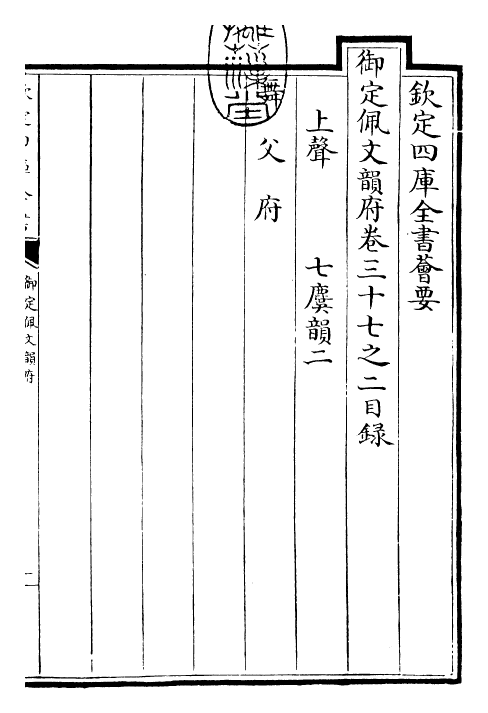 欽定四庫全書薈要
御定佩文韻府卷三十七之二目錄
上聲　七麌韻二
舞
父　府
御定佩文韻府